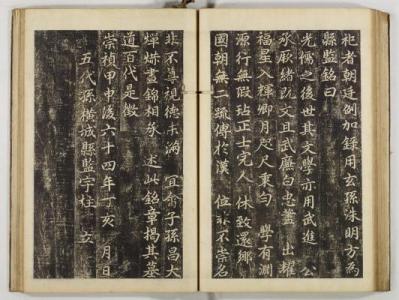 祀者朝廷例加錄用玄孫洙明方為
縣監銘曰
光儒之後世其文學亦用武進 公
承厥緒旣文且武廉白忠藎 出耀
福星入輝卿月咫尺東勻 學有淵
源行無假玷正士完人 休致還鄉
國朝無二疏傳於漢 位非不崇名
非不尊視德未滿 宜爾子孫昌大
蟬赫晝錦相承 述此銘章揭其墓
道百代是徵
崇禎甲申後六十四年丁亥 月 日
五代孫橫城縣監宇柱 立